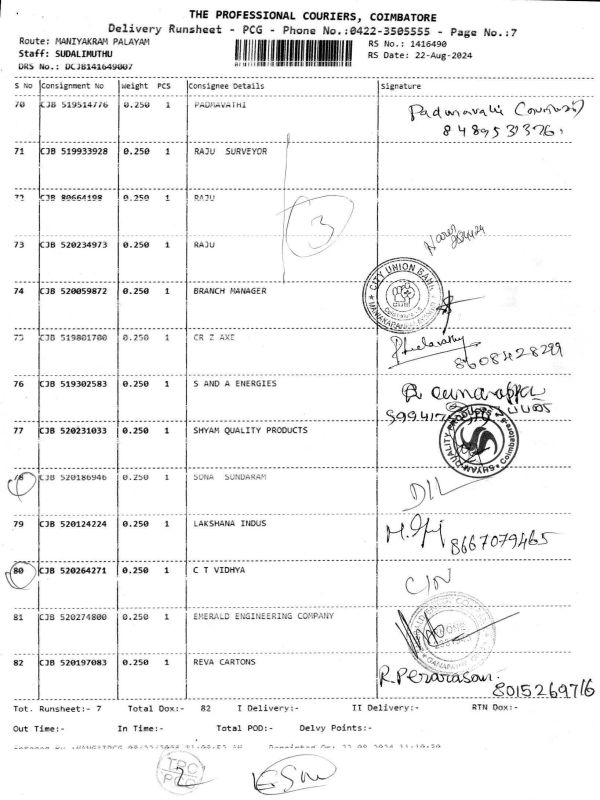 THE PROFESSIONAL COURIERS, COIMBATORE
Delivery Runsheet - PCG - Phone No.:0422-3505555 - Page No.:7
Route: MANIYAKRAM PALAYAM
RS No.: 1416490
Staff: SUDALIMUTHU
RS Date: 22-Aug-2024
DRS No.: DCJB141649007
S No Consignment No Weight PCS Consignee Details Signature
70 CJB 519514776 0.250 1 PADMAVATHI
Padmavathi
8489531376
71 CJB 519933928 0.250 1 RAJU SURVEYOR
72 CJB 80664198 0.250 1 RAJU
3
73 CJB 520234973 0.250 1 RAJU
74 CJB 520059872 0.250 1 BRANCH MANAGER
CITY UNION BANK
75 CJB 519801700 0.250 1 CR Z AXE
8608428299
76 CJB 519302583 0.250 1 S AND A ENERGIES
77 CJB 520231033 0.250 1 SHYAM QUALITY PRODUCTS
SHYAM QUALITY PRODUCTS Coimbatore
78 CJB 520186946 0.250 1 SONA SUNDARAM
D/L
79 CJB 520124224 0.250 1 LAKSHANA INDUS
8667079465
80 CJB 520264271 0.250 1 C T VIDHYA
81 CJB 520274800 0.250 1 EMERALD ENGINEERING COMPANY
82 CJB 520197083 0.250 1 REVA CARTONS
R. Perarasan.
8015269716
Tot. Runsheet:- 7 Total Dox:- 82 I Delivery:- II Delivery:- RTN Dox:-
Out Time:- In Time:- Total POD:- Delvy Points:-
TPC
2
PCG